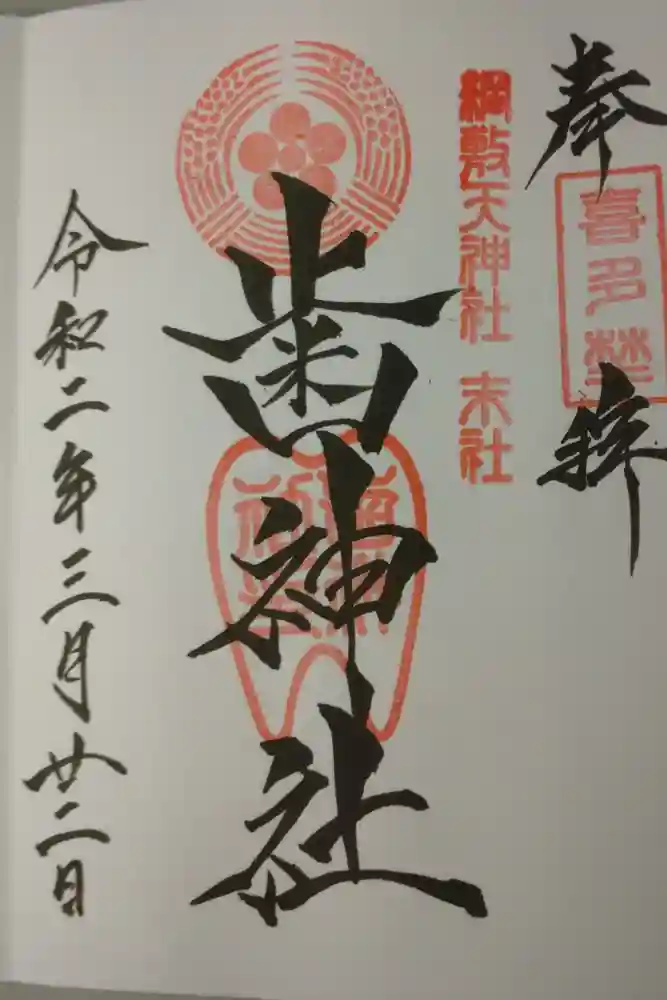 奉拝
喜多埜
綱敷天神社 末社
歯神社
令和二年三月廿二日